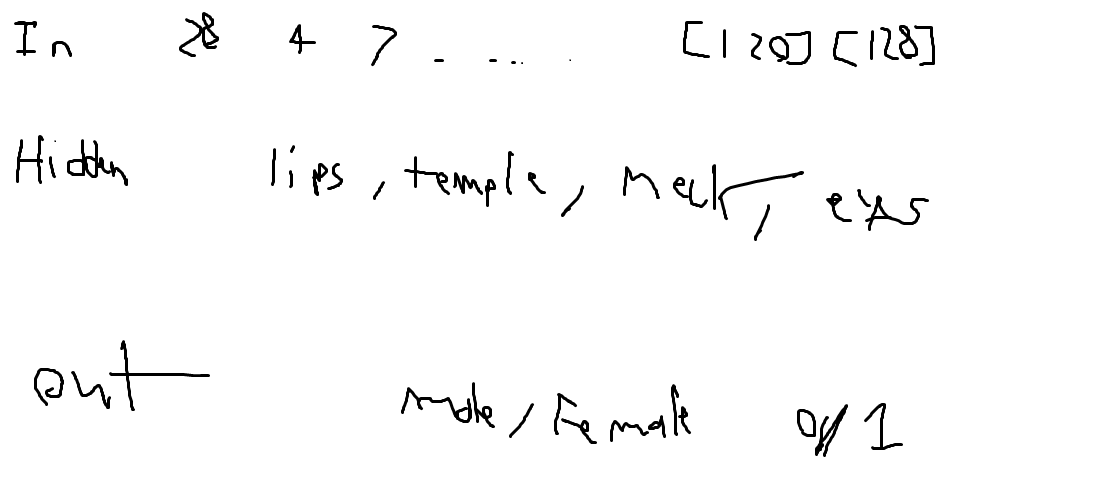 In 28 4 7 . .... . [120] [128]
Hidden lips, temple, neck, eyes
out male, Female 0/1